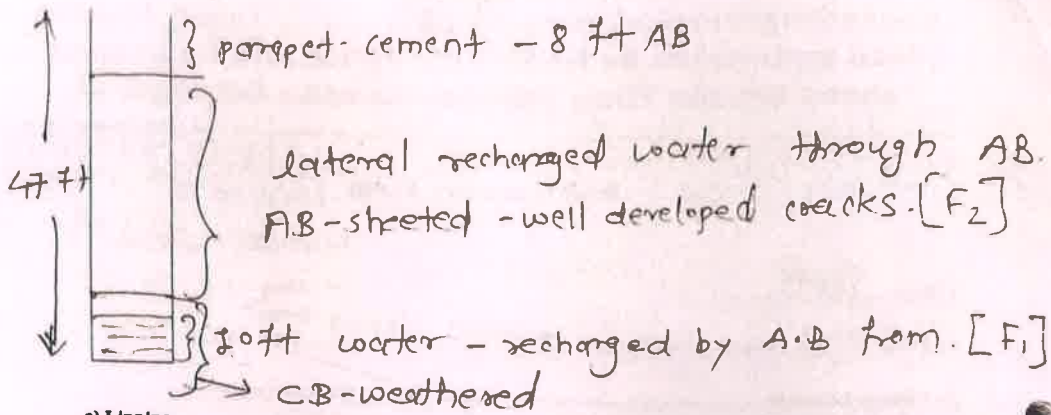 parapet-cement - 8 ft AB
47 ft
lateral recharged water through AB.
A.B - sheeted - well developed cracks. [F2]
10 ft water - recharged by A.B from. [F1]
CB-weathered